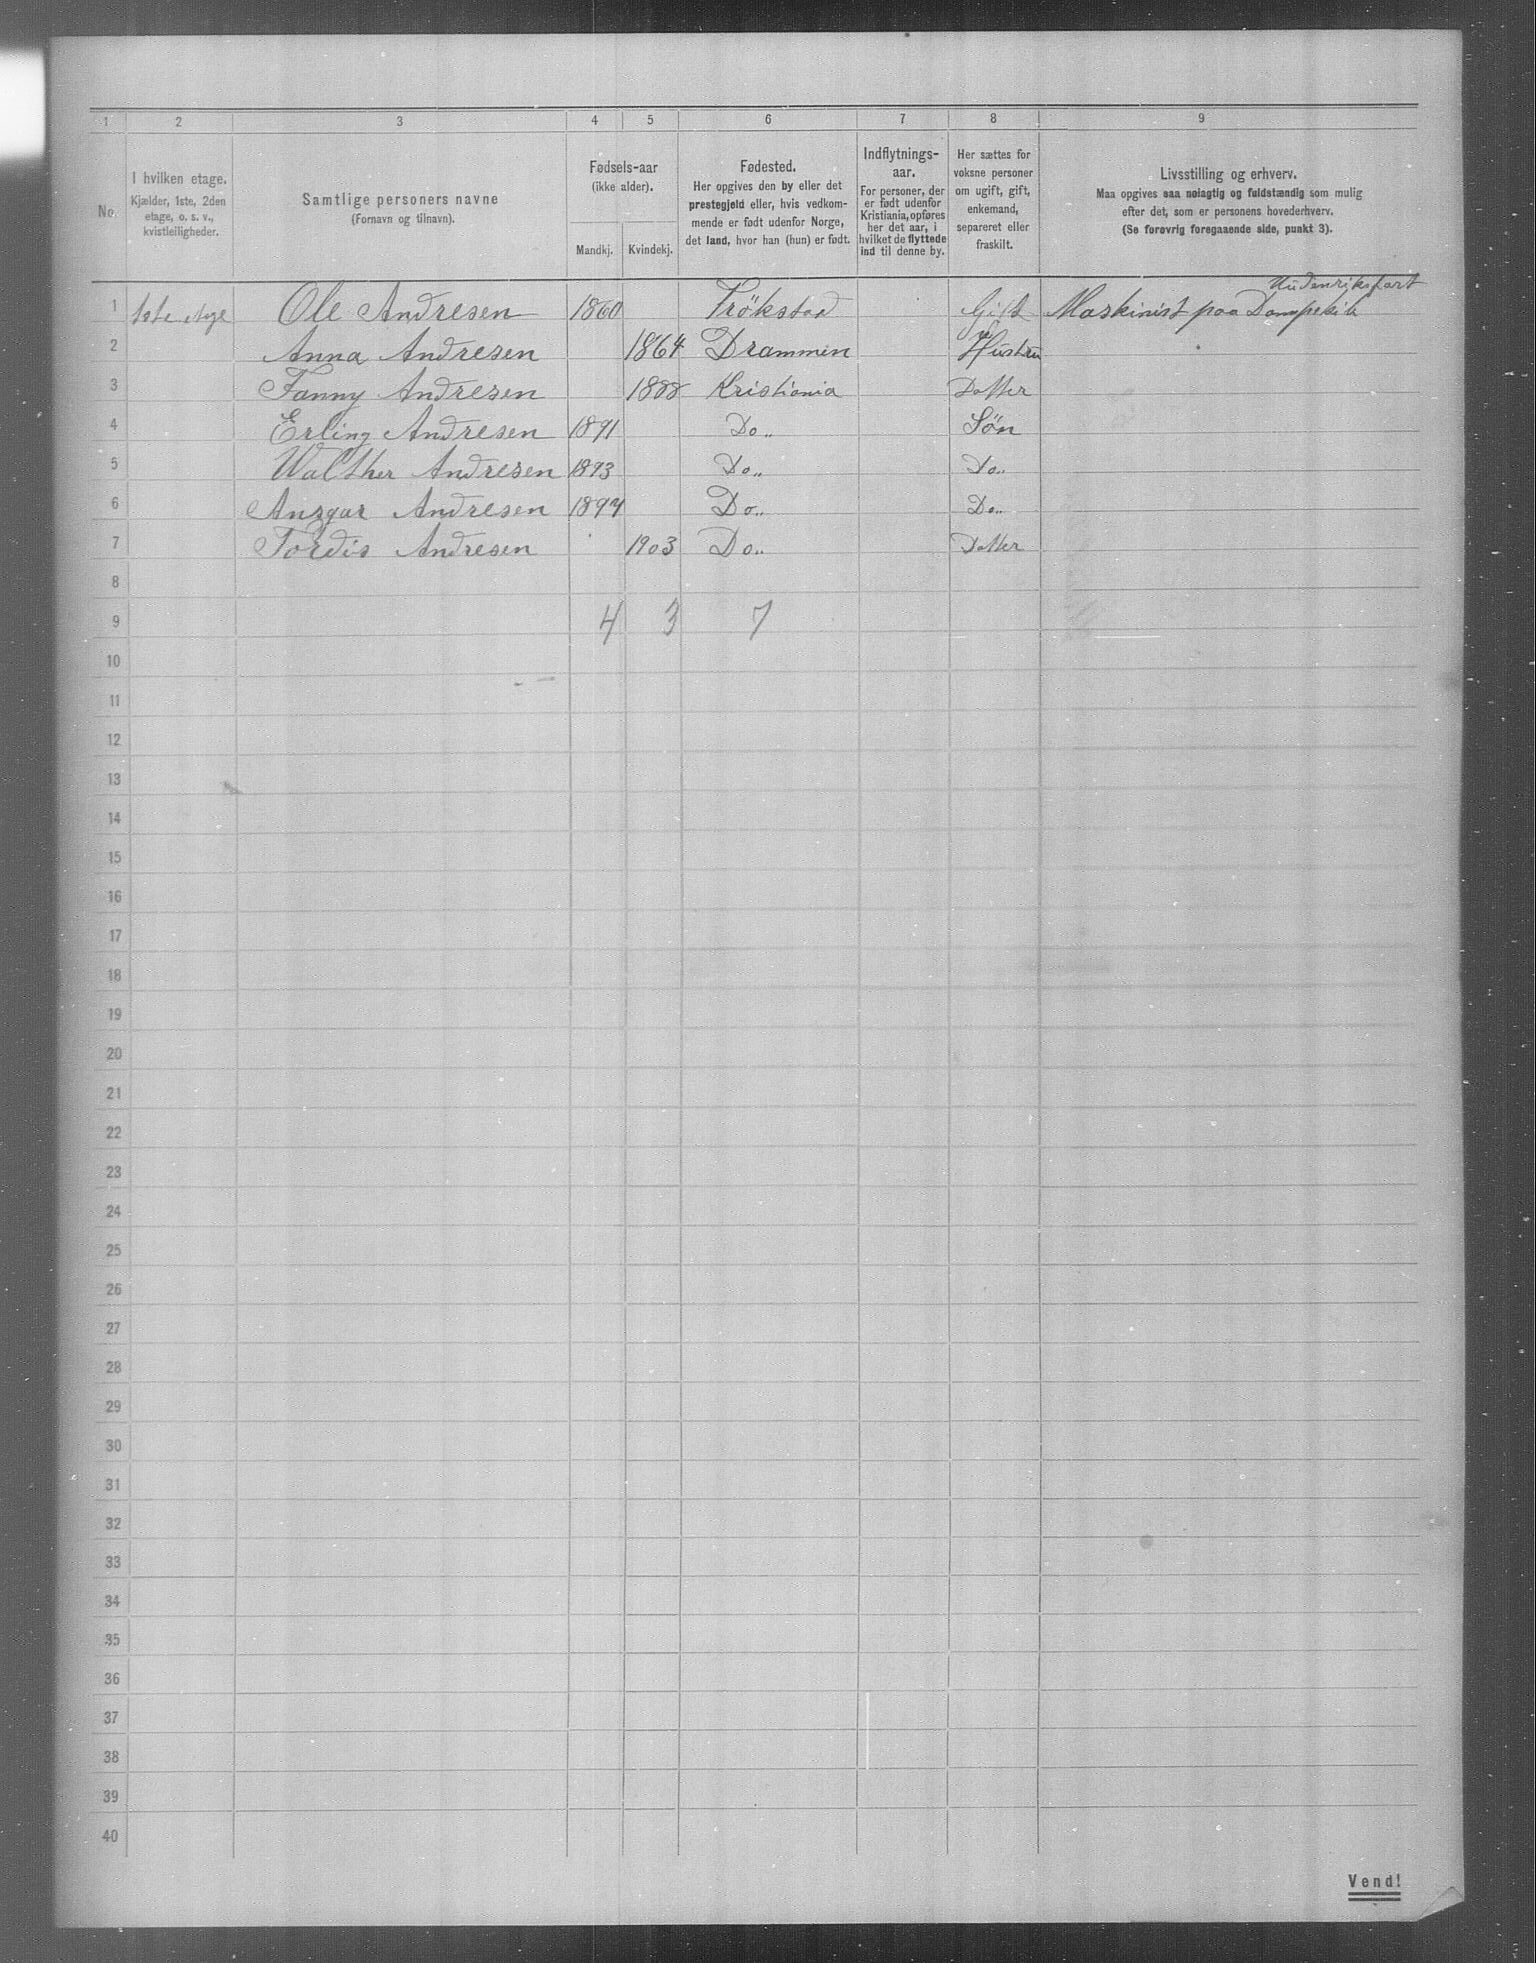 1 2 3 4 5 6 7 8 9
No.
I hvilken etage.
Kjælder, 1ste, 2den
etage, o. s. v.,
kvistleiligheder.
Samtlige personers navne
(Fornavn og tilnavn).
Fødsels-aar
(ikke alder).
Mandkj. Kvindekj.
Fødested.
Her opgives den by eller det
prestegjeld eller, hvis vedkom-
mende er født udenfor Norge,
det land, hvor han (hun) er født.
Indflytnings-
aar.
For personer, der
er født udenfor
Kristiania, opføres
her det aar, i
hvilket de flyttede
ind til denne by.
Her sættes for
voksne personer
om ugift, gift,
enkemand,
separeret eller
fraskilt.
Livsstilling og erhverv.
Maa opgives saa nøiagtig og fuldstændig som mulig
efter det, som er personens hovederhverv.
(Se forøvrig foregaaende side, punkt 3).
1 1ste etage Ole Andresen 1860 Trökstad Gift Maskinist paa Dampskib
2 Anna Andresen 1864 Drammen Hustru
3 Fanny Andresen 1888 Kristiania Datter
4 Erling Andresen 1891 Do.. Sön
5 Walther Andresen 1893 Do.. Do..
6 Ansgar Andresen 1897 Do.. Do..
7 Tordis Andresen 1903 Do.. Datter
8
9 4 3 7
10
11
12
13
14
15
16
17
18
19
20
21
22
23
24
25
26
27
28
29
30
31
32
33
34
35
36
37
38
39
40
Vend!